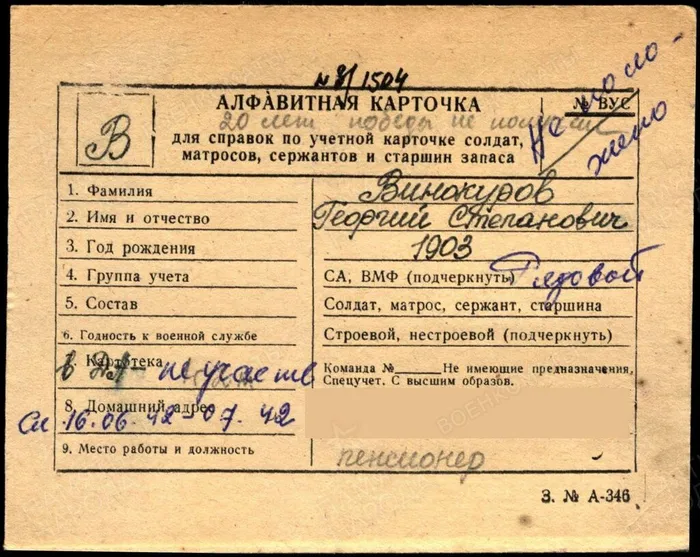 № 3/1504
АЛФАВИТНАЯ КАРТОЧКА
№ ВУС
Не поло-
жено
20 лет победы не получал
В
для справок по учетной карточке солдат,
матросов, сержантов и старшин запаса
1. Фамилия Винокуров
2. Имя и отчество Георгий Степанович
3. Год рождения 1903
4. Группа учета СА, ВМФ (подчеркнуть) Рядовой
5. Состав Солдат, матрос, сержант, старшина
6. Годность к военной службе Строевой, нестроевой (подчеркнуть)
7. Картотека Команда №______ Не имеющие предназначения,
Спецучет. С высшим образов.
в ДА- не участв
8. Домашний адрес
Сл 16.06.42-07.42
9. Место работы и должность пенсионер
З. № А-346